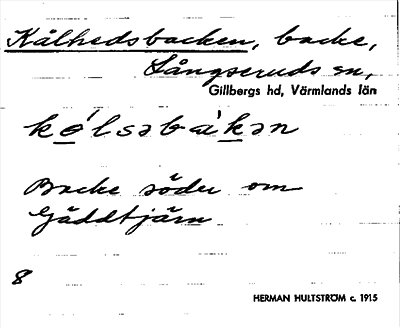 Kålhedsbacken, backe,
Långseruds sn,
Gillbergs hd, Värmlands län
kó̱lsəbàḵən
Backe söder om
Gäddtjärn
8
HERMAN HULTSTRÖM c. 1915